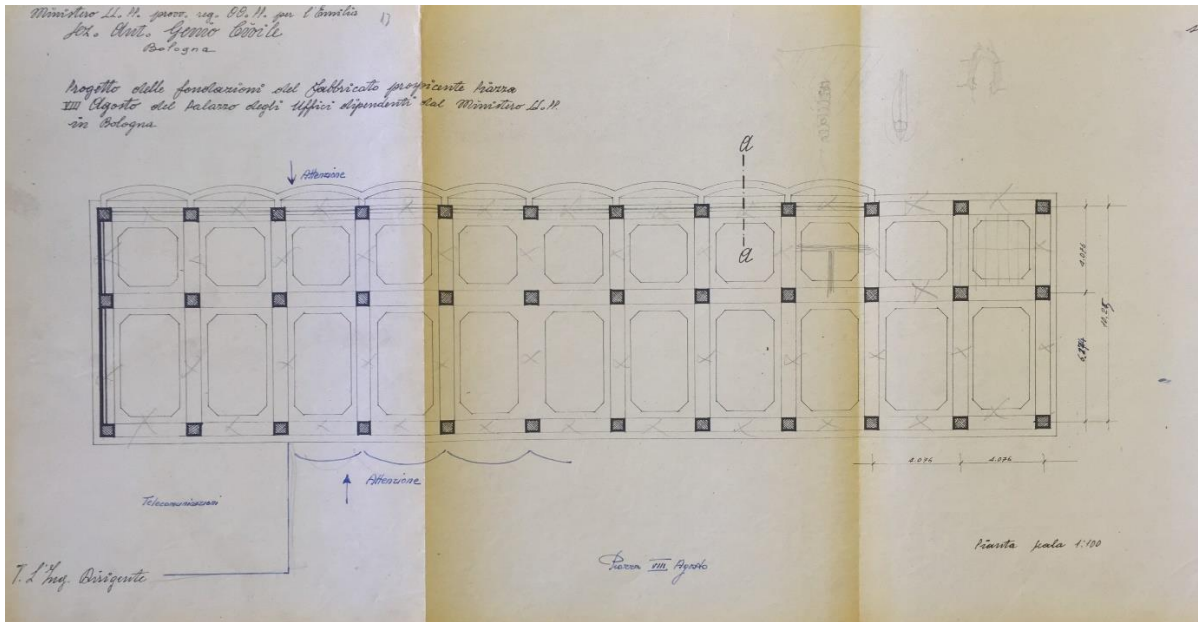 Ministero LL. PP. provv. reg. OO. PP. per l'Emilia
Sez. Aut. Genio Civile
Bologna
Progetto delle fondazioni del fabbricato prospicente Piazza
VIII Agosto del Palazzo degli Uffici dipendenti dal Ministero LL. PP.
in Bologna
Attenzione
a
a
4.074
6.274
11.25
4.074 4.074
Attenzione
Telecomunicazioni
Pianta scala 1:100
Piazza VIII Agosto
L'Ing. Dirigente